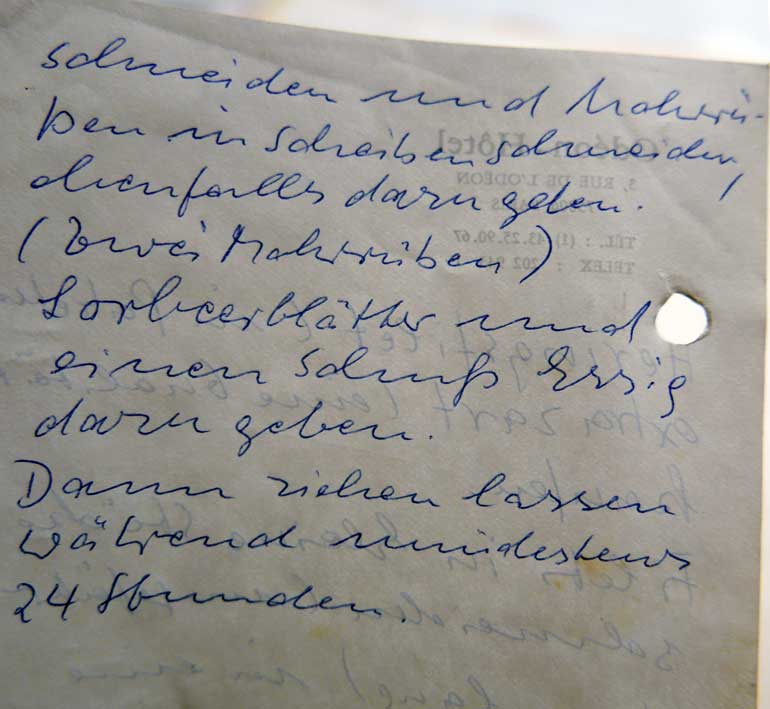 schneiden und Mohrrü-
ben in Scheiben schneiden,
ebenfalls dazu geben.
(Zwei Mohrrüben)
Lorbeerblätter und
einen Schuß Essig
dazu geben.
Dann ziehen lassen
während mindestens
24 Stunden.
Odéon Hôtel
3, RUE DE L'ODÉON
TÉL. : (1) 43.25.90.67
TELEX : 202